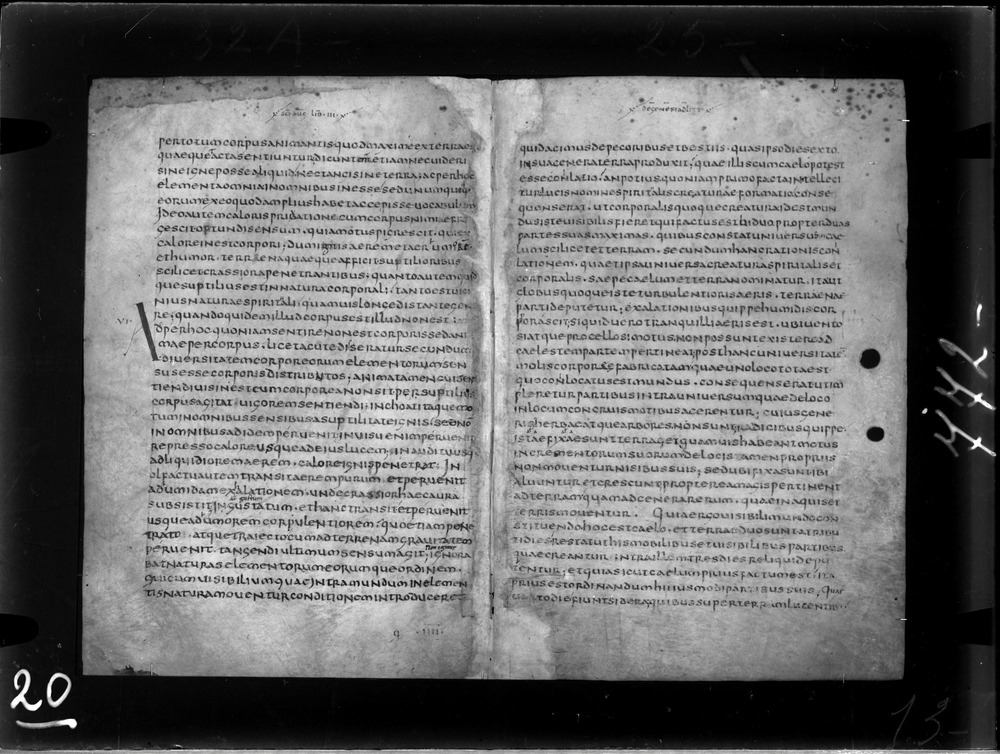 sci aug lib · III ·
pertotumcorpusanimantisquodmaximeexterrae
quaequetactasentiunturdicuntemetiamnecuideri
sineigneposse aliquid nectancisineterra acperhoc
elementaomniainomnibusinessesedunumquodque
eorumexeoquodampliushabetaccepissevocabulum
Ideoautemcalorispriuationecumcorpusnimiefri
gescitobtundisensum · quiamotuspigrescit · quiex
caloreinestcorpori ; dumignisaeremetaerumore
ethumor · terrenaquaequeafficitsubtilioribus
scilicetcrassiorapenetrantibus ; quantoautemquid
quesubtiliusestinnaturacorporali · tantoestuici
niusnaturaespiritali · quamuislongedistantegene
re ; quandoquidemilludcorpusestilludnonest ;
VI · acperhocquoniamsentirenonestcorporissedani
maepercorpus · licetacutediseratursecundum
diuersitatemcorporeorumelementorumsen
susessecorporisdistributos ; animatamencuisen
tiendiuisinestcumcorporeanonsitpersubtilius
corpusagitat uigoremsentiendi · inchoatitaquemo
tuminomnibussensibusasubtilitateignissedno
inomnibusadidemperuenit · inuisuenimperuenit
repressocaloreusqueadeiuslucem · inauditausq
adliquidioremaerem · caloreignispenetrat ; In
olfactuautemtransitaerempurum · etperuenit
adumidamexalationem · undecrassiorhaecaura
subsistit · ingustatum · ethanctransitetperuenit
usqueadumoremcorpulentiorem ; quoetiampene
trato · atquetraiectocumadterrenamgrauitatem
peruenit · tangendiultimumsensumagit ; ignora
batnaturaselementorumeorumqueordinem ·
quicumuisibiliumquaeintramunduminelemen
tisnaturamouenturconditionemintroduceret
q · IIII ·
de genesi ad litt
quidacimusdepecoribusetbestiis · quasipsodiesexto
insuageneraterraproduxit ; quaeilliscumcaelopotest
esseconlatio ; anpotiusquoniamprimofactaintellegi
turlucisnominespiritaliscreaturaeformatioconse
quenserat · utcorporalisquoquecreaturaidestmun
dusisteuisibilisfieretquifactusestbiduopropterduas
partessuasmaximas · quibusconstatuniuersus · cae
lumscilicetetterram · secundumhancrationiscon
lationem · quaetipsauniuersacreaturaspiritaliset
corporalis · saepecaelumetterranominatur ; itaut
globusquoqueisteturbulentiorisaeris · terrenae
partideputetur ; exalationibusquippehumidiscor
porascit ; siquiduerotranquilliaerisest · ubiuento
siatqueprocellosimotusnonpossuntexistere ad
caelestempartempertineat ; posthancuniuersitate
moliscorporeaefabricatamquaeunolocototaest
quoconlocatusestmundus · consequenseratutim
plereturpartibusintrauniuersumquaedeloco
inlocumcongruismotibusagerentur ; cuiusgene
risherbaeatquearboresnonsunt ; radicibusquippe
istaefixaesuntterrae ; etquamuishabeantmotus
incrementorumsuorum · delocistamenpropriis
nonmouenturnisibussuis ; sedubifixasuntibi
aluunturetcrescunt · proptereamagispertinent
adterramquamadgenerarerum · quaeinaquiset
terrismouentur · Quiaergouisibilimundocon
stituendahocestcaelo · etterraeduosuntatribu
tidies · restatuthismobilibusetuisibilibuspartibus
quaecreantur · intrailltresdiesreliquidepu
tentur ; etquiasicutcaelumpriusfactumest · ita
priusestordinandumhuiusmodipartibussuis ; Quar
totodiefiuntsideraquibussuperterramlucentib
20
442